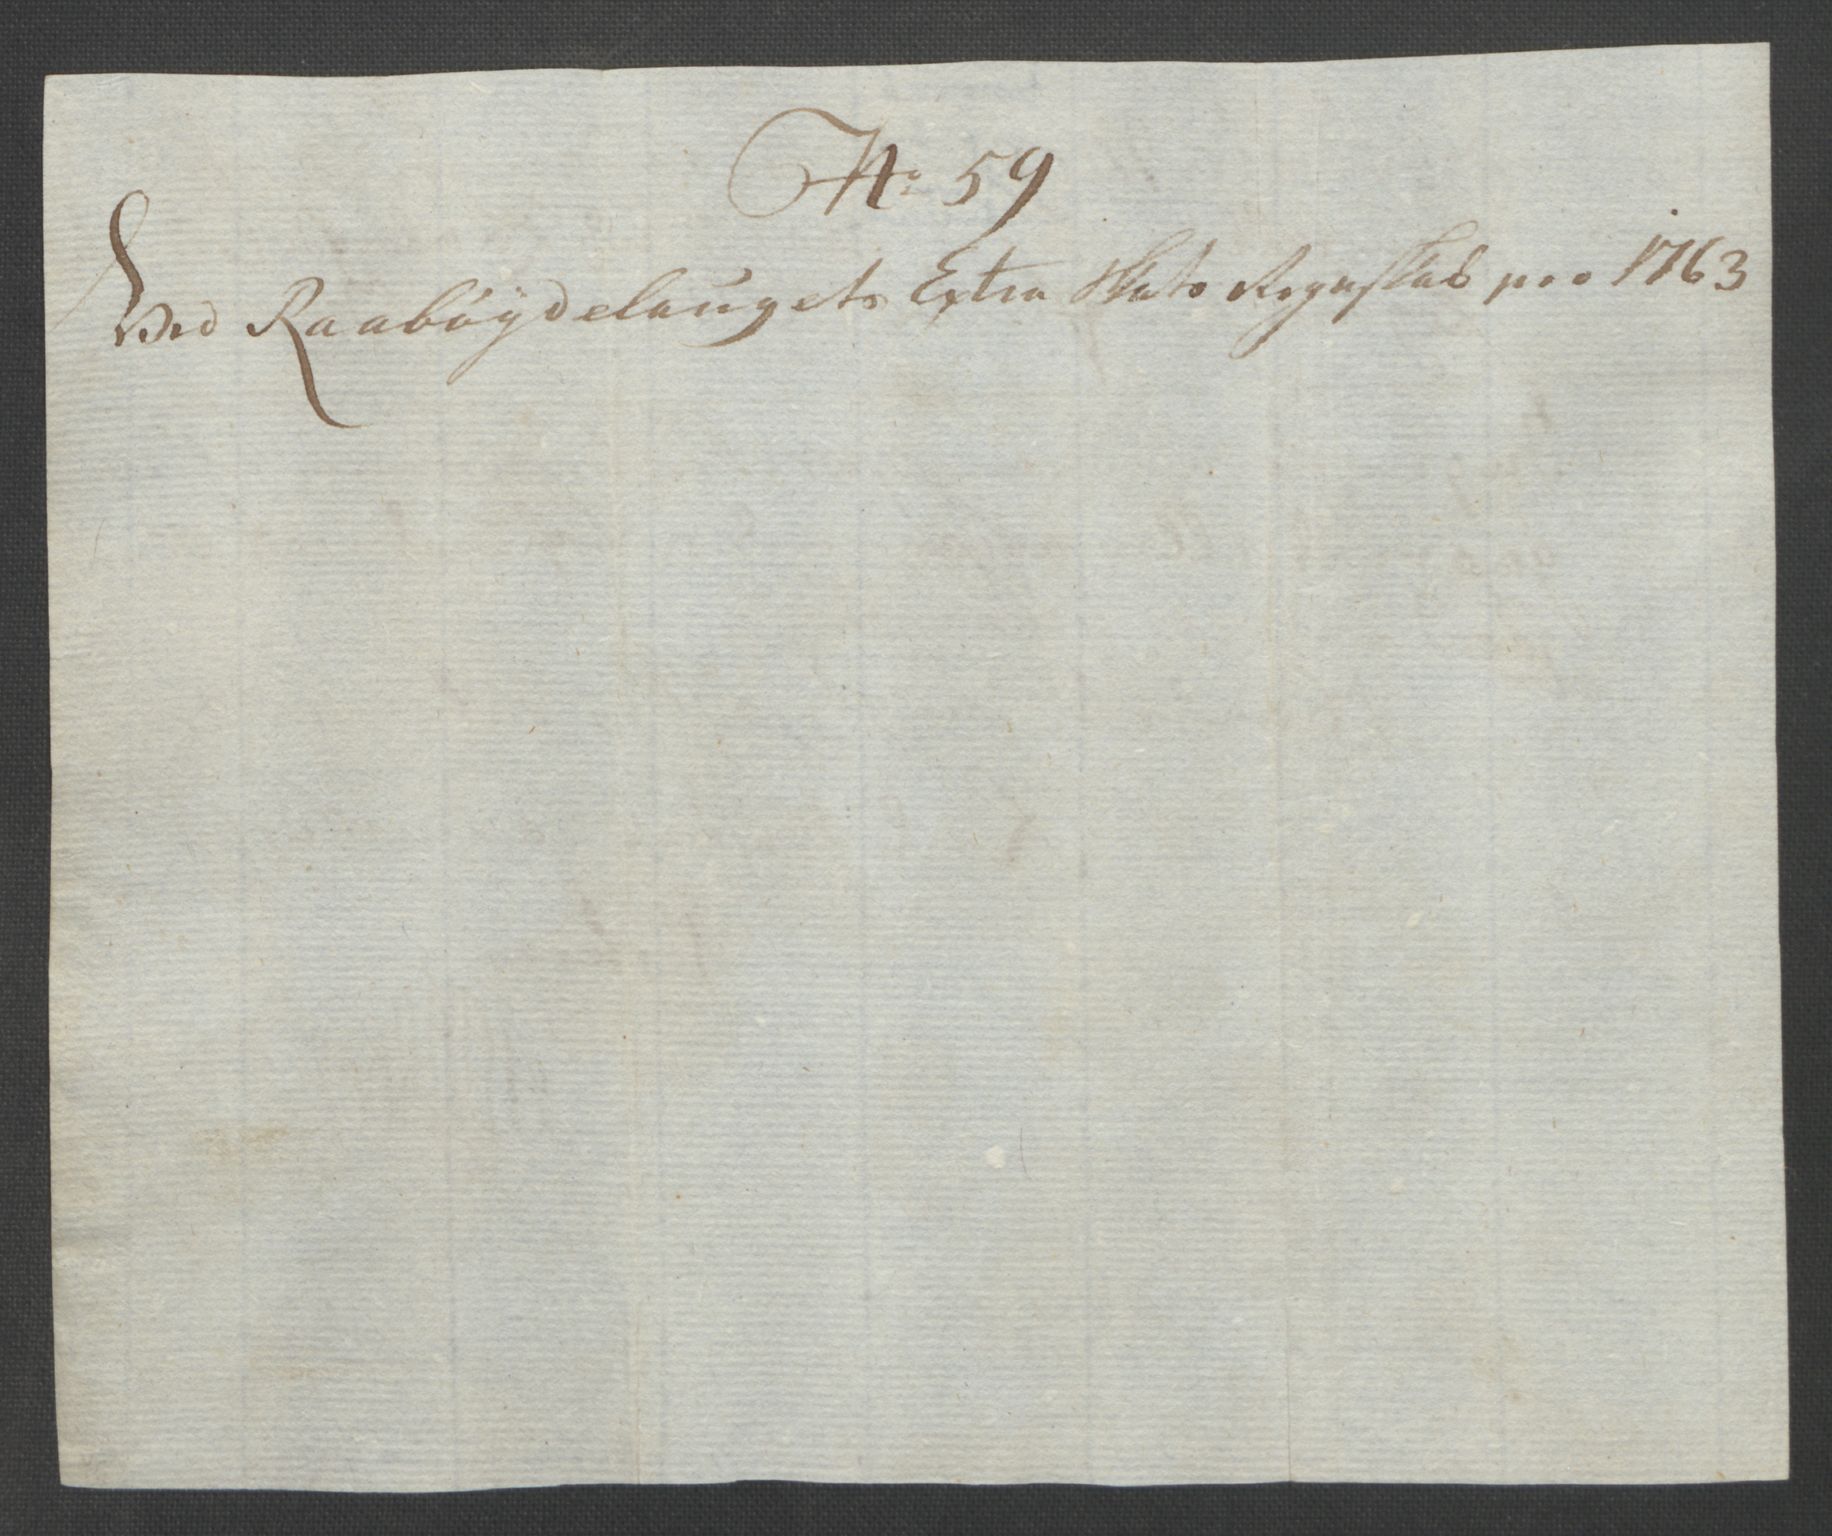 No 59
Ved Raabøydelaugets Extra Skats Regnskab pro 1763